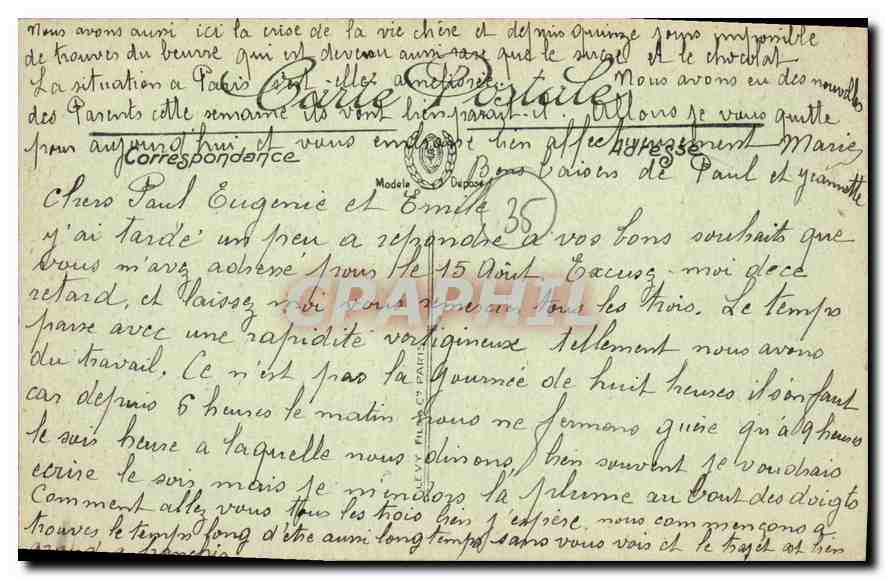 Nous avons aussi ici la crise de la vie chère et depuis quinze jours impossible
de trouver du beurre qui est devenu aussi rare que le sucre et le chocolat
La situation a Paris s'est-elle améliorée. Nous avons eu des nouvelles
Carte Postale
des Parents cette semaine ils vont bien parait-il. Allons je vous quitte
pour aujourd'hui et vous embrasse bien affectueusement Marie
Correspondance
Adresse
Bons baisers de Paul et Jeannette
Modèle Déposé
35
Chers Paul Eugenie et Emile
j'ai tardé un peu a repondre a vos bons souhaits que
vous m'avez adressé pour le 15 Août. Excusez-moi de ce
retard, et laissez moi vous remercier tous les trois. Le temps
CPAPHIL
passe avec une rapidité vertigineuse tellement nous avons
du travail. Ce n'est pas la journée de huit heures il s'en faut
car depuis 6 heures le matin nous ne fermons guère qu'à 9 heures
le soir heure a laquelle nous dinons, bien souvent je voudrais
ecrire le soir mais je m'endors la plume au bout des doigts
Comment allez vous tous les trois bien j'espère, nous commençons a
trouver le temps long d'être aussi longtemps sans vous voir et le trajet est bien
LEVY FILS & Cº PARIS